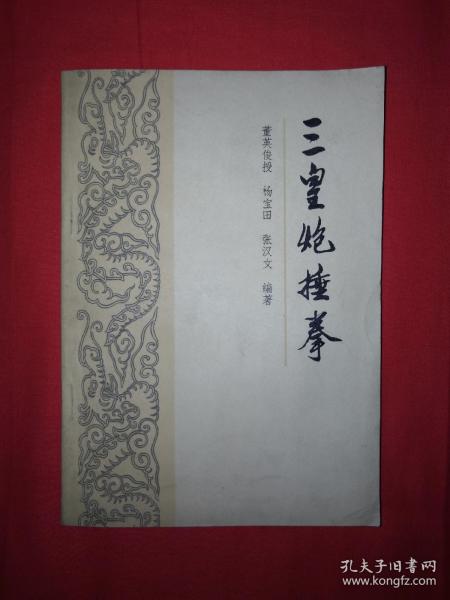 三皇炮捶拳
董英俊授 杨宝田 张汉文 编著
孔夫子旧书网
www.kongfz.com